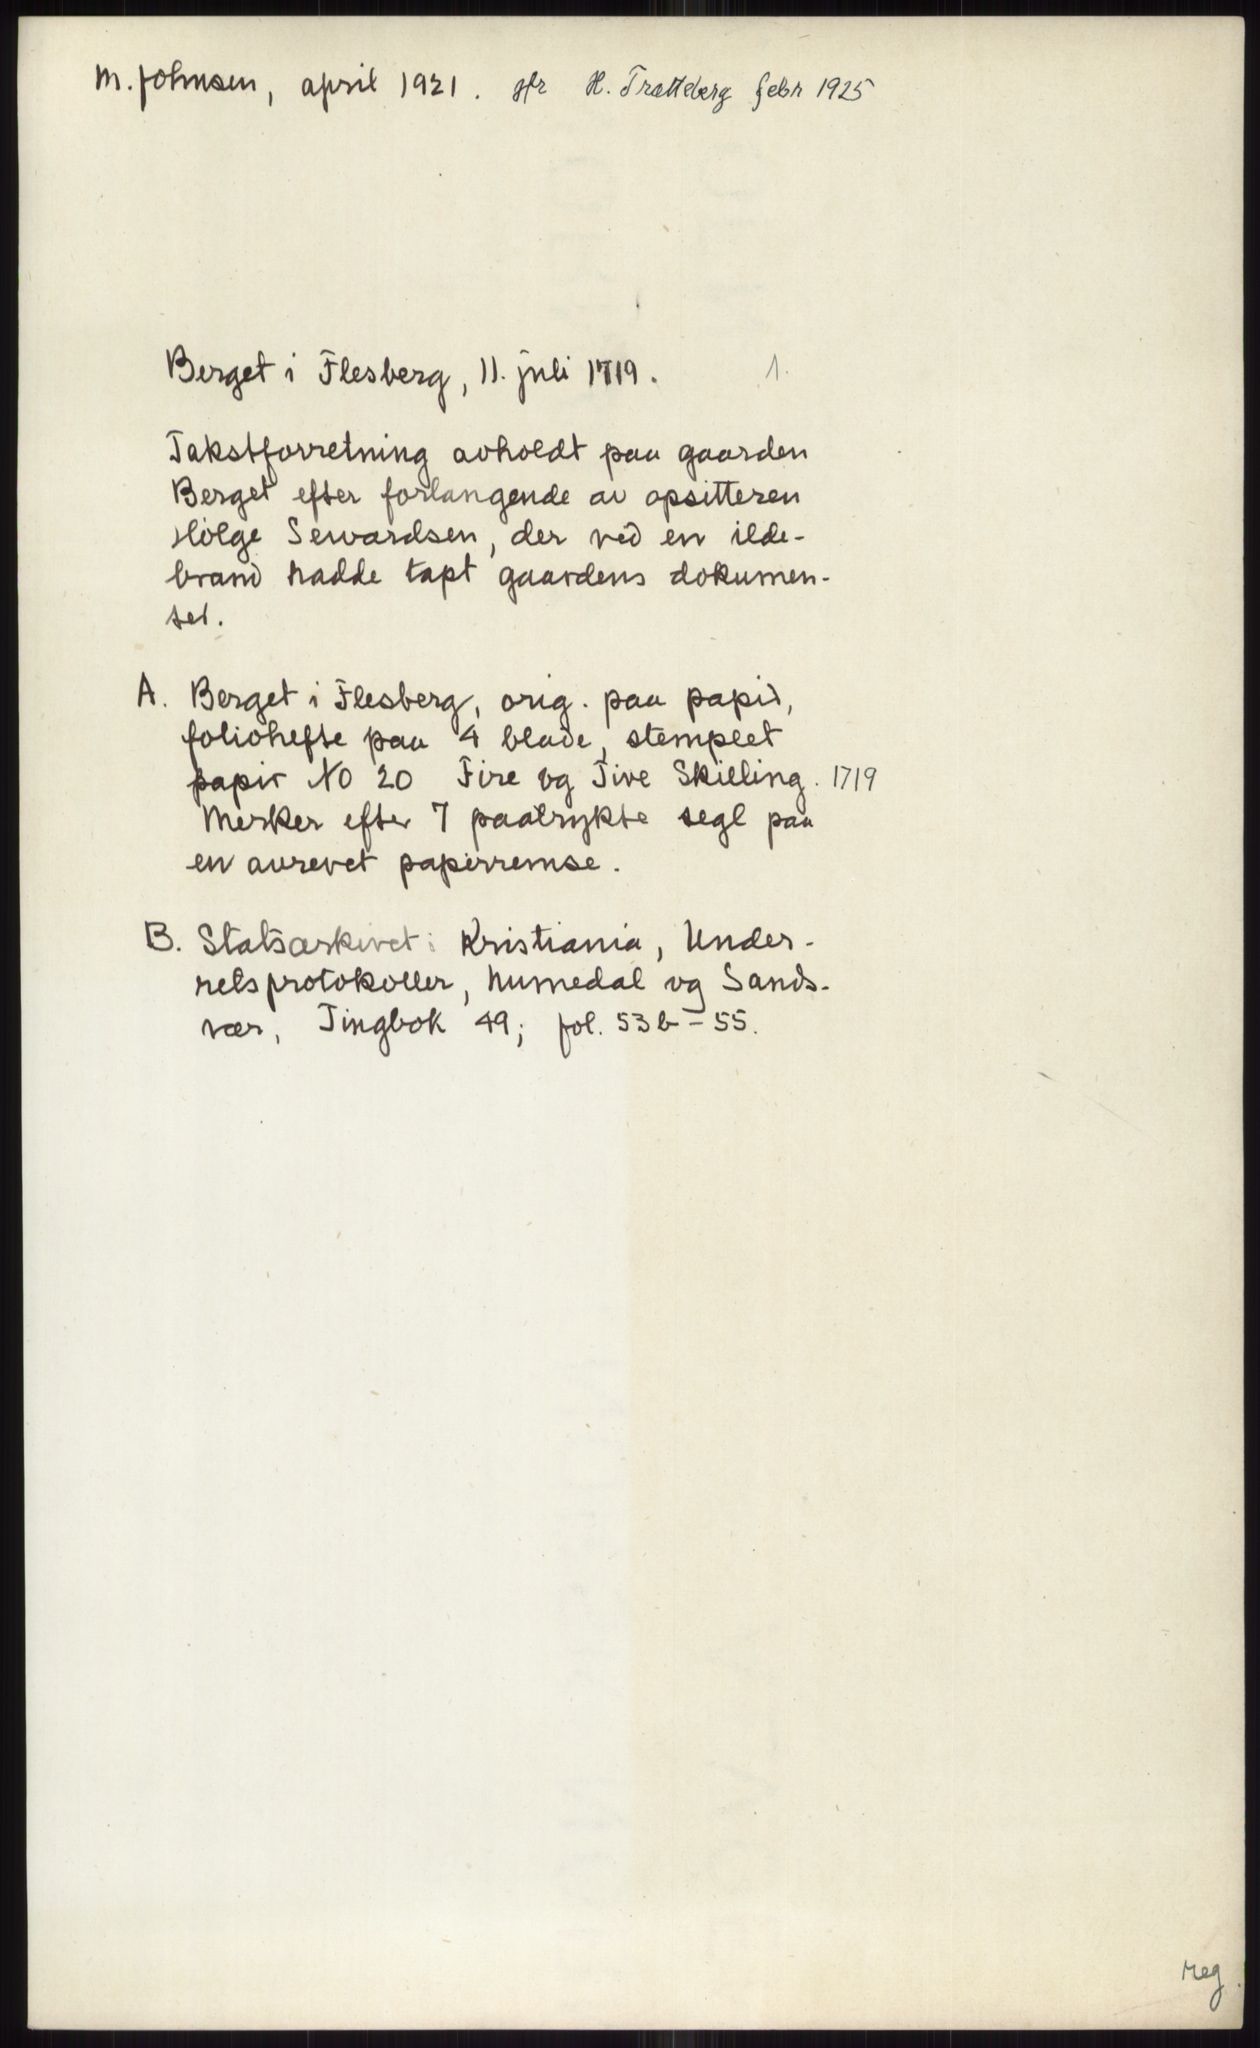 M. Johnsen, april 1921. Jfr H. Trætteberg febr 1925
Berget i Flesberg, 11. juli 1719. 1.
Takstforretning avholdt paa gaarden
Berget efter forlangende av opsitteren
Holge Sewardsen, der ved en ilde-
brand hadde tapt gaardens dokumen-
ter.
A. Berget i Flesberg, orig. paa papir,
foliohefte paa 4 blade, stemplet
papir No 20 Fire og Tive Skilling. 1719
Merker efter 7 paatrykte segl paa
en avrevet papirremse.
B. Statsarkivet i Kristiania, Under-
retsprotokoller, Numedal og Sands-
vær, Tingbok 49; fol. 53b-55.
reg.